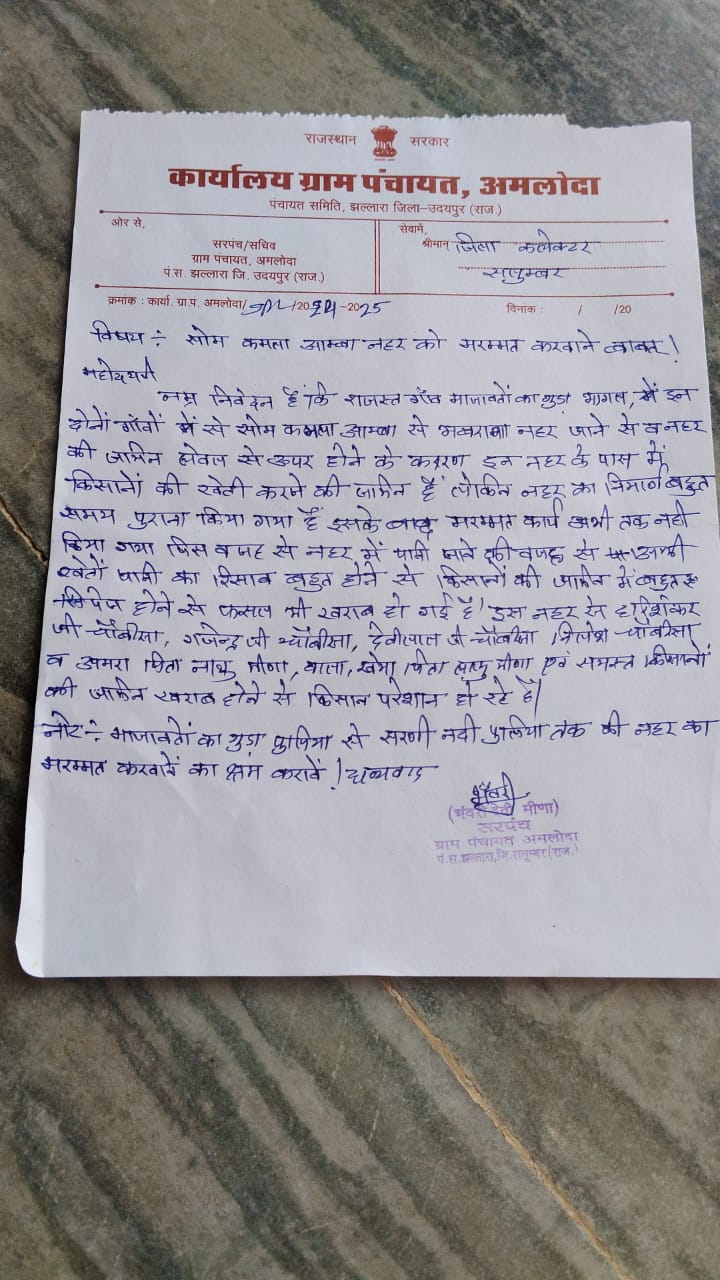 राजस्थान सरकार
कार्यालय ग्राम पंचायत, अमलोदा
पंचायत समिति, झल्लारा जिला-उदयपुर (राज.)
ओर से,
सरपंच/सचिव
ग्राम पंचायत, अमलोदा
पं.स. झल्लारा जि. उदयपुर (राज.)
सेवामें,
श्रीमान जिला कलेक्टर
सलुम्बर
क्रमांक : कार्या. ग्रा.प. अमलोदा/ /2024-2025
दिनांक : / /20
विषय :- सोम कमला आम्बा नहर को मरम्मत करवाने बाबत !
महोदयजी
नम्र निवेदन है कि राजस्व गाँव भाजावतों का गुडा भागल, में इन
दोनों गाँवों में से सोम कमला आम्बा से भबराना नहर जाने से व नहर
की जमिन लेवल से ऊपर होने के कारण इन नहर के पास में
किसानों की खेती करने की जामिन हैं लेकिन नहर का निर्माण बहुत
समय पुराना किया गया हैं इसके बाद मरम्मत कार्य अभी तक नही
किया गया जिस वजह से नहर में पानी जाने की वजह से
खेतों पानी का रिसाव बहुत होने से किसानों की जामिन में बहुत
होने से फसल भी खराब हो गई है। इस नहर से हरिशंकर
जी चौबीसा, गजेन्द्र जी चौबीसा, देवीलाल जी चौबीसा चौबीसा
व अमरा पिता नाथु मीणा, वाला, खेमा पिता मीणा एवं समस्त किसानों
की जामिन खराब होने से किसान परेशान हो रहे हैं।
नोट :- भाजावतों का गुडा पुलिया से सरणी नदी पुलिया तक की नहर का
मरम्मत करवाने का श्रम करावें ! धन्यवाद
भँवरी
(भंवरी देवी मीणा)
सरपंच
ग्राम पंचायत अमलोदा
पं.स.झल्लारा,जि.सलूम्बर(राज.)